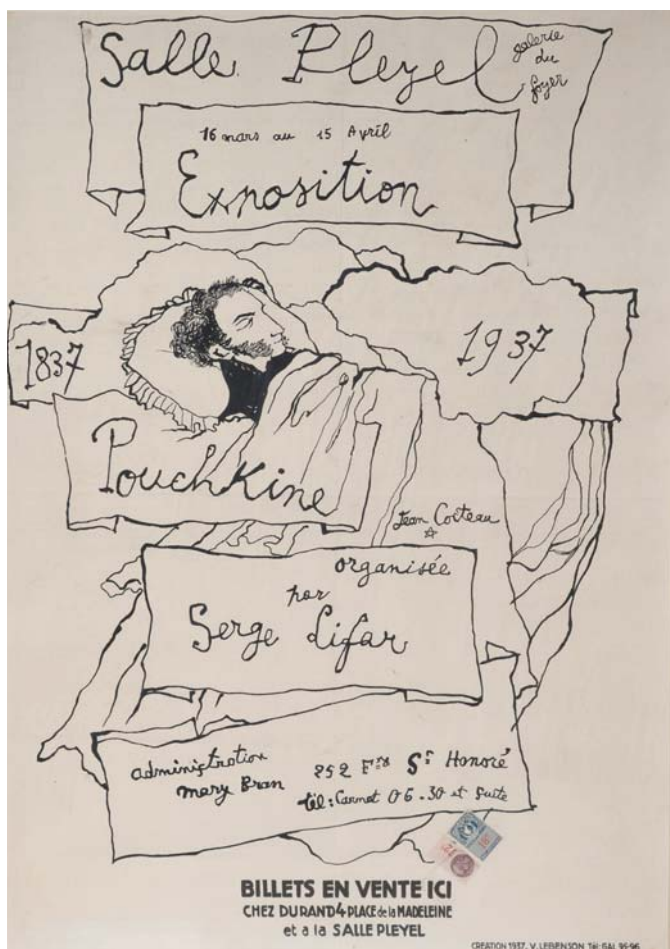 Salle Pleyel
galerie
du
foyer
16 mars au 15 Avril
Exposition
1837
1937
Pouchkine
Jean Cocteau
organisée
par
Serge Lifar
administration
mary Bran
252 Frg St Honoré
tél: Carnot 06-30 et suite
BILLETS EN VENTE ICI
CHEZ DURAND 4 PLACE de la MADELEINE
et a la SALLE PLEYEL
CREATION 1937. V. LEBENSON. Tél: GAL. 95-96